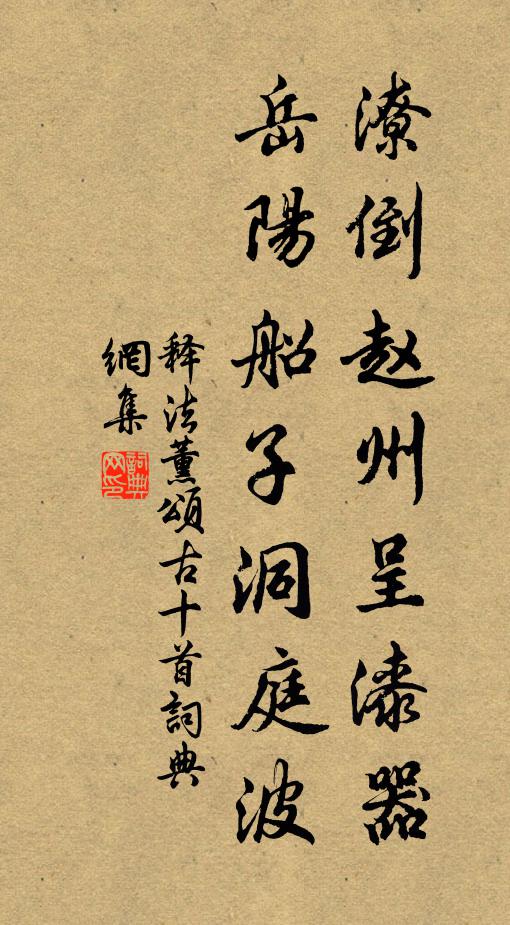 潦倒赵州呈漆器
岳陽船子洞庭波
释法薰頌古十首詞典
網集
詞典網印